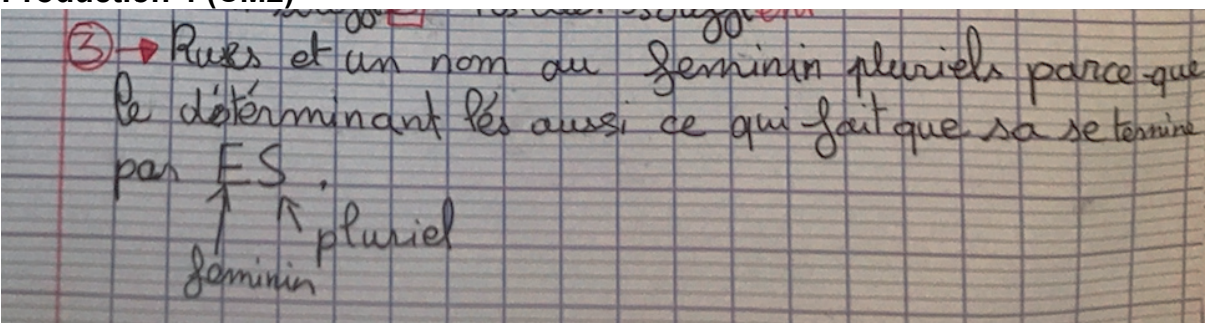 Production 1 (CM2)
③→ Rues et un nom au feminin pluriels parce que
le détérminant lés aussi ce qui fait que sa se termine
par ES.
pluriel
feminin